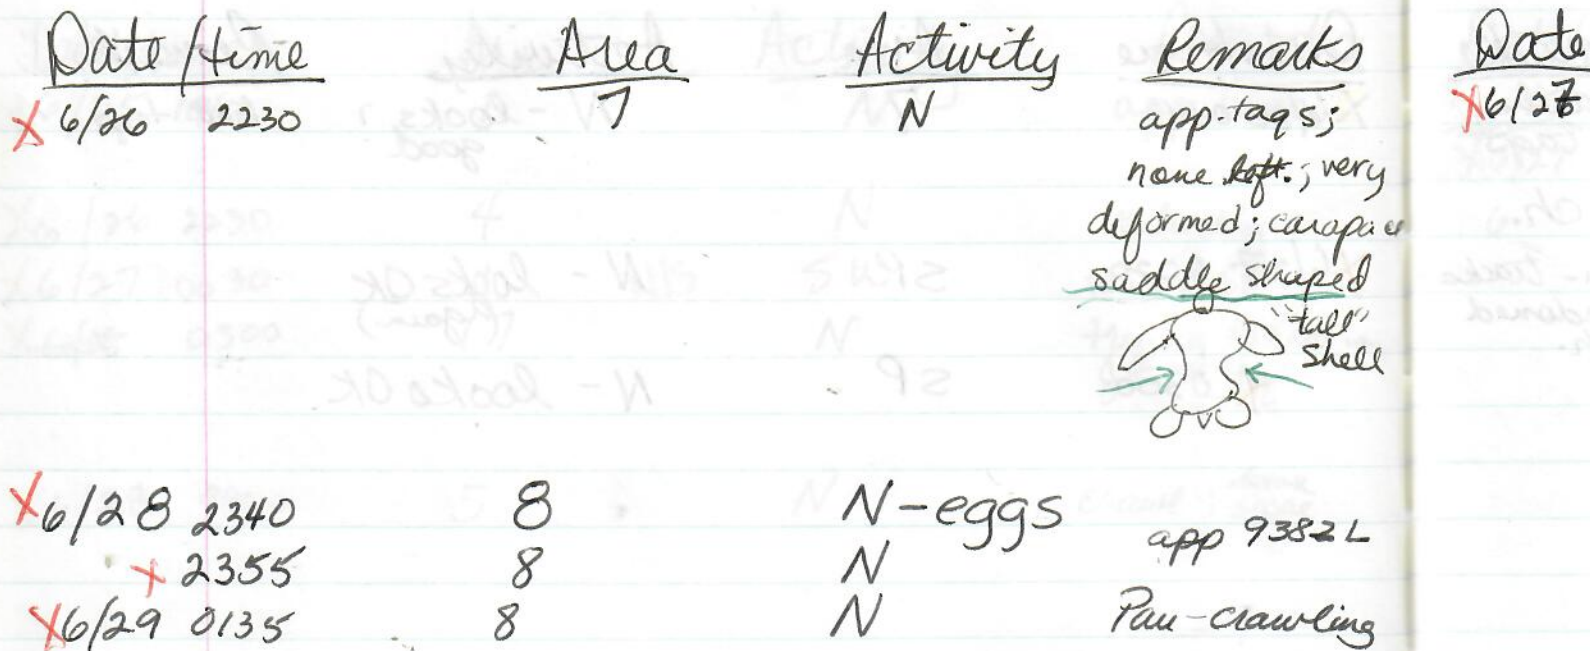 Date/time Area Activity Remarks Date
X 6/26 2230 7 N app. tags; X 6/27
none left.; very
deformed; carapace
saddle shaped
"tall"
shell
X 6/28 2340 8 N-eggs app 9382L
X 2355 8 N
X 6/29 0135 8 N Pau-crawling